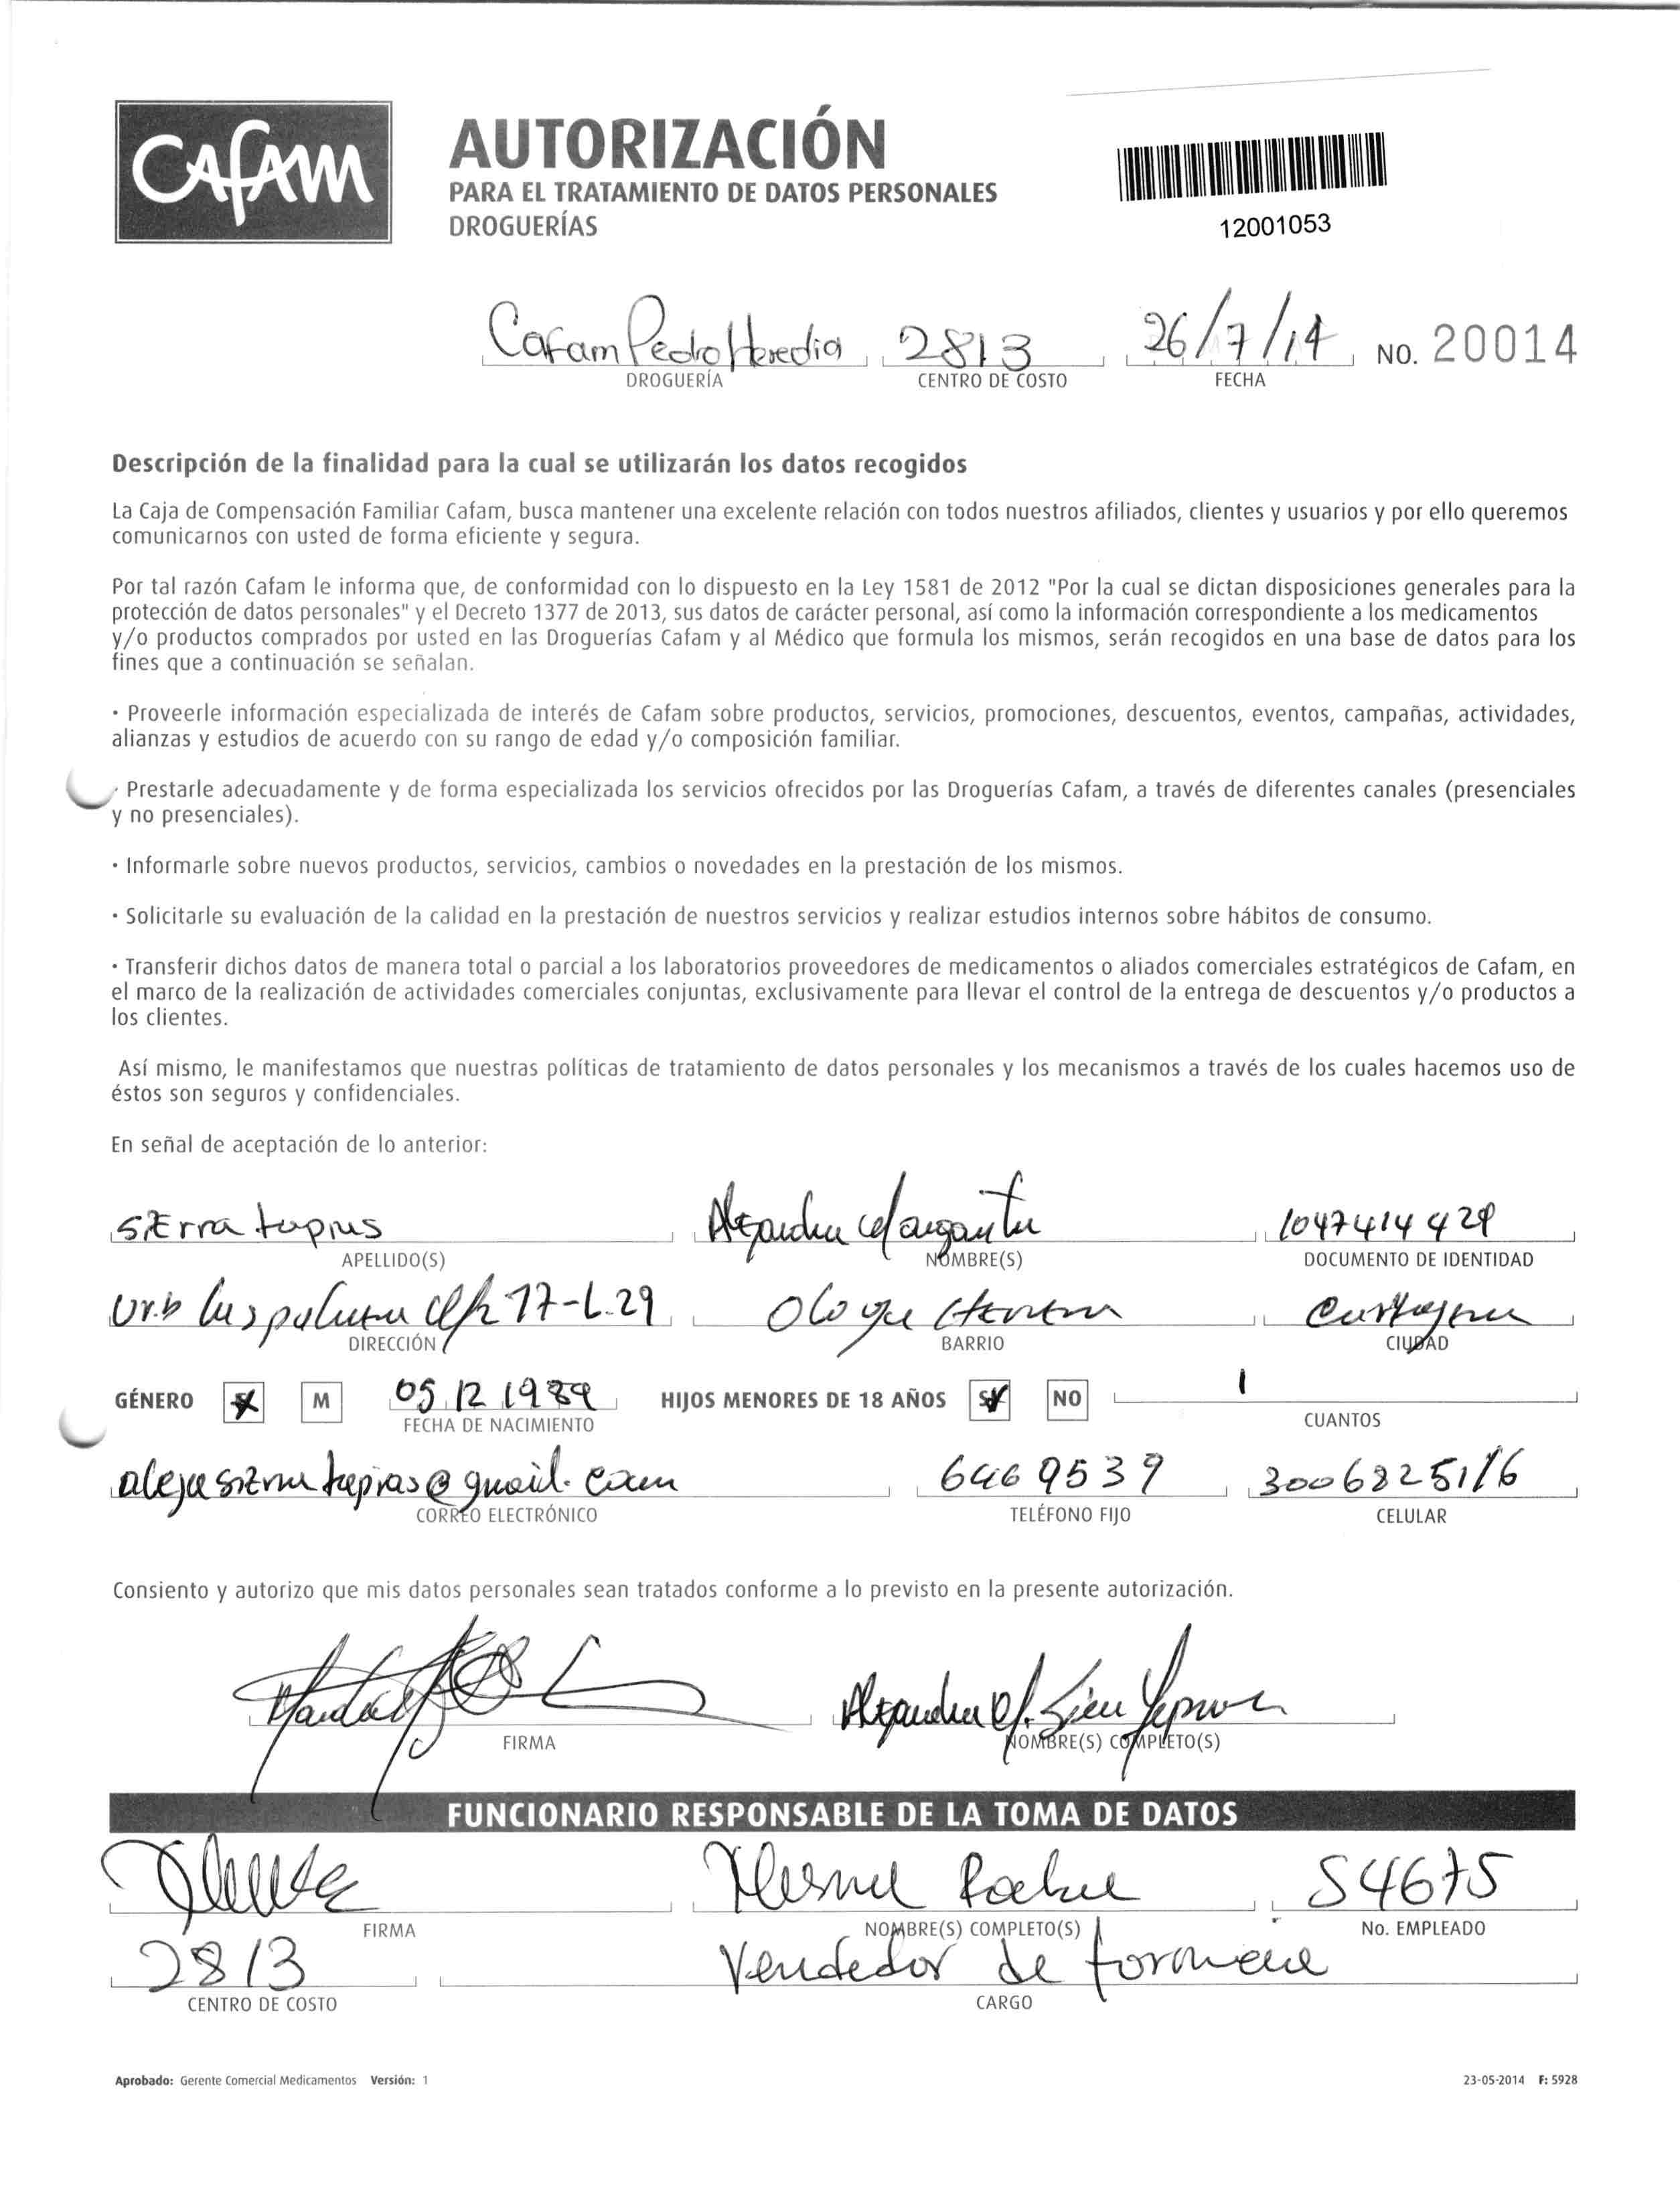 CAFAM
AUTORIZACIÓN
PARA EL TRATAMIENTO DE DATOS PERSONALES
DROGUERÍAS
12001053
Cafam Pedro Heredia 2813 26/7/14 NO. 20014
DROGUERÍA CENTRO DE COSTO FECHA
Descripción de la finalidad para la cual se utilizarán los datos recogidos
La Caja de Compensación Familiar Cafam, busca mantener una excelente relación con todos nuestros afiliados, clientes y usuarios y por ello queremos
comunicarnos con usted de forma eficiente y segura.
Por tal razón Cafam le informa que, de conformidad con lo dispuesto en la Ley 1581 de 2012 "Por la cual se dictan disposiciones generales para la
protección de datos personales" y el Decreto 1377 de 2013, sus datos de carácter personal, así como la información correspondiente a los medicamentos
y/o productos comprados por usted en las Droguerías Cafam y al Médico que formula los mismos, serán recogidos en una base de datos para los
fines que a continuación se señalan.
· Proveerle información especializada de interés de Cafam sobre productos, servicios, promociones, descuentos, eventos, campañas, actividades,
alianzas y estudios de acuerdo con su rango de edad y/o composición familiar.
· Prestarle adecuadamente y de forma especializada los servicios ofrecidos por las Droguerías Cafam, a través de diferentes canales (presenciales
y no presenciales).
· Informarle sobre nuevos productos, servicios, cambios o novedades en la prestación de los mismos.
· Solicitarle su evaluación de la calidad en la prestación de nuestros servicios y realizar estudios internos sobre hábitos de consumo.
· Transferir dichos datos de manera total o parcial a los laboratorios proveedores de medicamentos o aliados comerciales estratégicos de Cafam, en
el marco de la realización de actividades comerciales conjuntas, exclusivamente para llevar el control de la entrega de descuentos y/o productos a
los clientes.
Así mismo, le manifestamos que nuestras políticas de tratamiento de datos personales y los mecanismos a través de los cuales hacemos uso de
éstos son seguros y confidenciales.
En señal de aceptación de lo anterior:
Sierra tapias Alejandra Margarita 1047414429
APELLIDO(S) NOMBRE(S) DOCUMENTO DE IDENTIDAD
Urb las palmeras 17-L.29 Olaya Herrera Cartagena
DIRECCIÓN BARRIO CIUDAD
GÉNERO M 05 12 1989 HIJOS MENORES DE 18 AÑOS SI NO 1
FECHA DE NACIMIENTO CUANTOS
alejasierratapias@gmail.com 6469539 3006825116
CORREO ELECTRÓNICO TELÉFONO FIJO CELULAR
Consiento y autorizo que mis datos personales sean tratados conforme a lo previsto en la presente autorización.
Alejandra M. Sierra
FIRMA NOMBRE(S) COMPLETO(S)
FUNCIONARIO RESPONSABLE DE LA TOMA DE DATOS
54675
FIRMA NOMBRE(S) COMPLETO(S) No. EMPLEADO
2813 Vendedor de
CENTRO DE COSTO CARGO
Aprobado: Gerente Comercial Medicamentos Versión: 1 23-05-2014 F: 5928